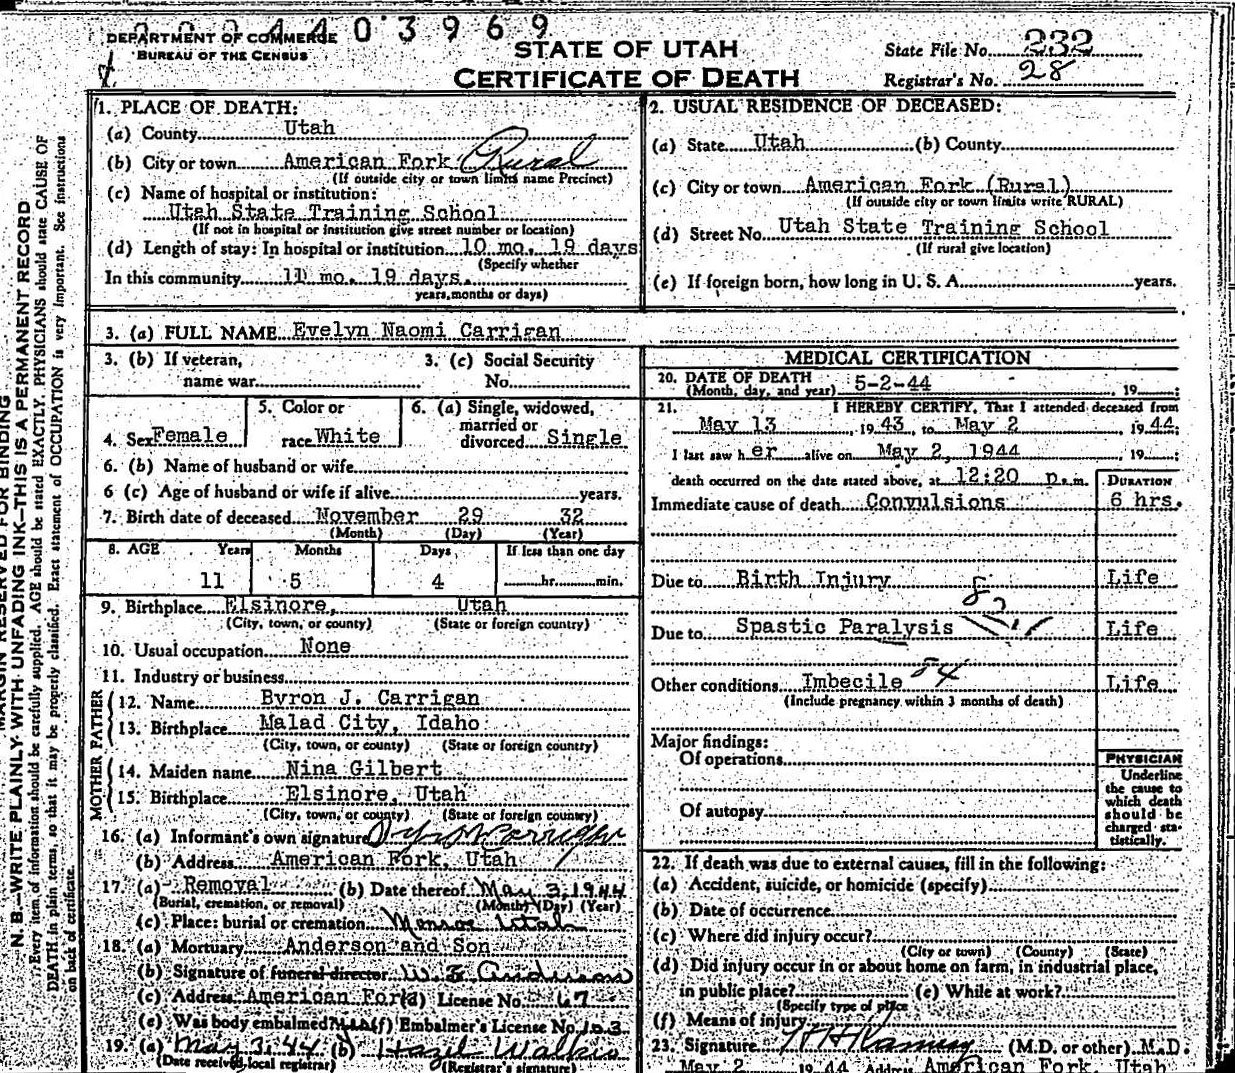 2024403969
DEPARTMENT OF COMMERCE
BUREAU OF THE CENSUS
STATE OF UTAH
CERTIFICATE OF DEATH
State File No. 232
Registrar's No. 28
MARGIN RESERVED FOR BINDING
N. B.—WRITE PLAINLY, WITH UNFADING INK—THIS IS A PERMANENT RECORD
Every item of information should be carefully supplied. AGE should be stated EXACTLY. PHYSICIANS should state CAUSE OF
DEATH in plain terms, so that it may be properly classified. Exact statement of OCCUPATION is very important. See instructions
on back of certificate.
1. PLACE OF DEATH:
(a) County Utah
(b) City or town American Fork Rural
(If outside city or town limits name Precinct)
(c) Name of hospital or institution:
Utah State Training School
(If not in hospital or institution give street number or location)
(d) Length of stay: In hospital or institution 10 mo. 19 days
(Specify whether
In this community 11 mo. 19 days.
years, months or days)
2. USUAL RESIDENCE OF DECEASED:
(a) State Utah (b) County
(c) City or town American Fork (Rural)
(If outside city or town limits write RURAL)
(d) Street No. Utah State Training School
(If rural give location)
(e) If foreign born, how long in U. S. A. years.
3. (a) FULL NAME Evelyn Naomi Carrigan
3. (b) If veteran,
name war
3. (c) Social Security
No.
4. Sex Female
5. Color or
race White
6. (a) Single, widowed,
married or
divorced Single
6. (b) Name of husband or wife
6 (c) Age of husband or wife if alive years.
7. Birth date of deceased November 29 32
(Month) (Day) (Year)
8. AGE Years Months Days If less than one day
11 5 4 hr. min.
9. Birthplace Elsinore, Utah
(City, town, or county) (State or foreign country)
10. Usual occupation None
11. Industry or business
FATHER
12. Name Byron J. Carrigan
13. Birthplace Malad City, Idaho
(City, town, or county) (State or foreign country)
MOTHER
14. Maiden name Nina Gilbert
15. Birthplace Elsinore, Utah
(City, town, or county) (State or foreign country)
16. (a) Informant's own signature Carrigan
(b) Address American Fork, Utah
17. (a) Removal (b) Date thereof May 3, 1944
(Burial, cremation, or removal) (Month) (Day) (Year)
(c) Place: burial or cremation Monroe Utah
18. (a) Mortuary Anderson and Son
(b) Signature of funeral director W. E. Anderson
(c) Address American Fork (d) License No. 67
(e) Was body embalmed? (f) Embalmer's License No. 103
19. (a) May 3, 44 (b) Hazel Walker
(Date received local registrar) (Registrar's signature)
MEDICAL CERTIFICATION
20. DATE OF DEATH
(Month, day, and year) 5-2-44 19 ;
21. I HEREBY CERTIFY, That I attended deceased from
May 13, 1943, to May 2, 1944;
I last saw her alive on May 2, 1944, 19 ;
death occurred on the date stated above, at 12:20 p.m.
DURATION
Immediate cause of death Convulsions 6 hrs.
Due to Birth Injury Life
Due to Spastic Paralysis Life
Other conditions Imbecile 84 Life
(Include pregnancy within 3 months of death)
Major findings:
Of operations
Of autopsy
PHYSICIAN
Underline
the cause to
which death
should be
charged sta-
tistically.
22. If death was due to external causes, fill in the following:
(a) Accident, suicide, or homicide (specify)
(b) Date of occurrence
(c) Where did injury occur?
(City or town) (County) (State)
(d) Did injury occur in or about home on farm, in industrial place,
in public place? (e) While at work?
(Specify type of place
(f) Means of injury
23. Signature H H Ramsey (M.D. or other) M.D.
May 2 1944 Address American Fork, Utah